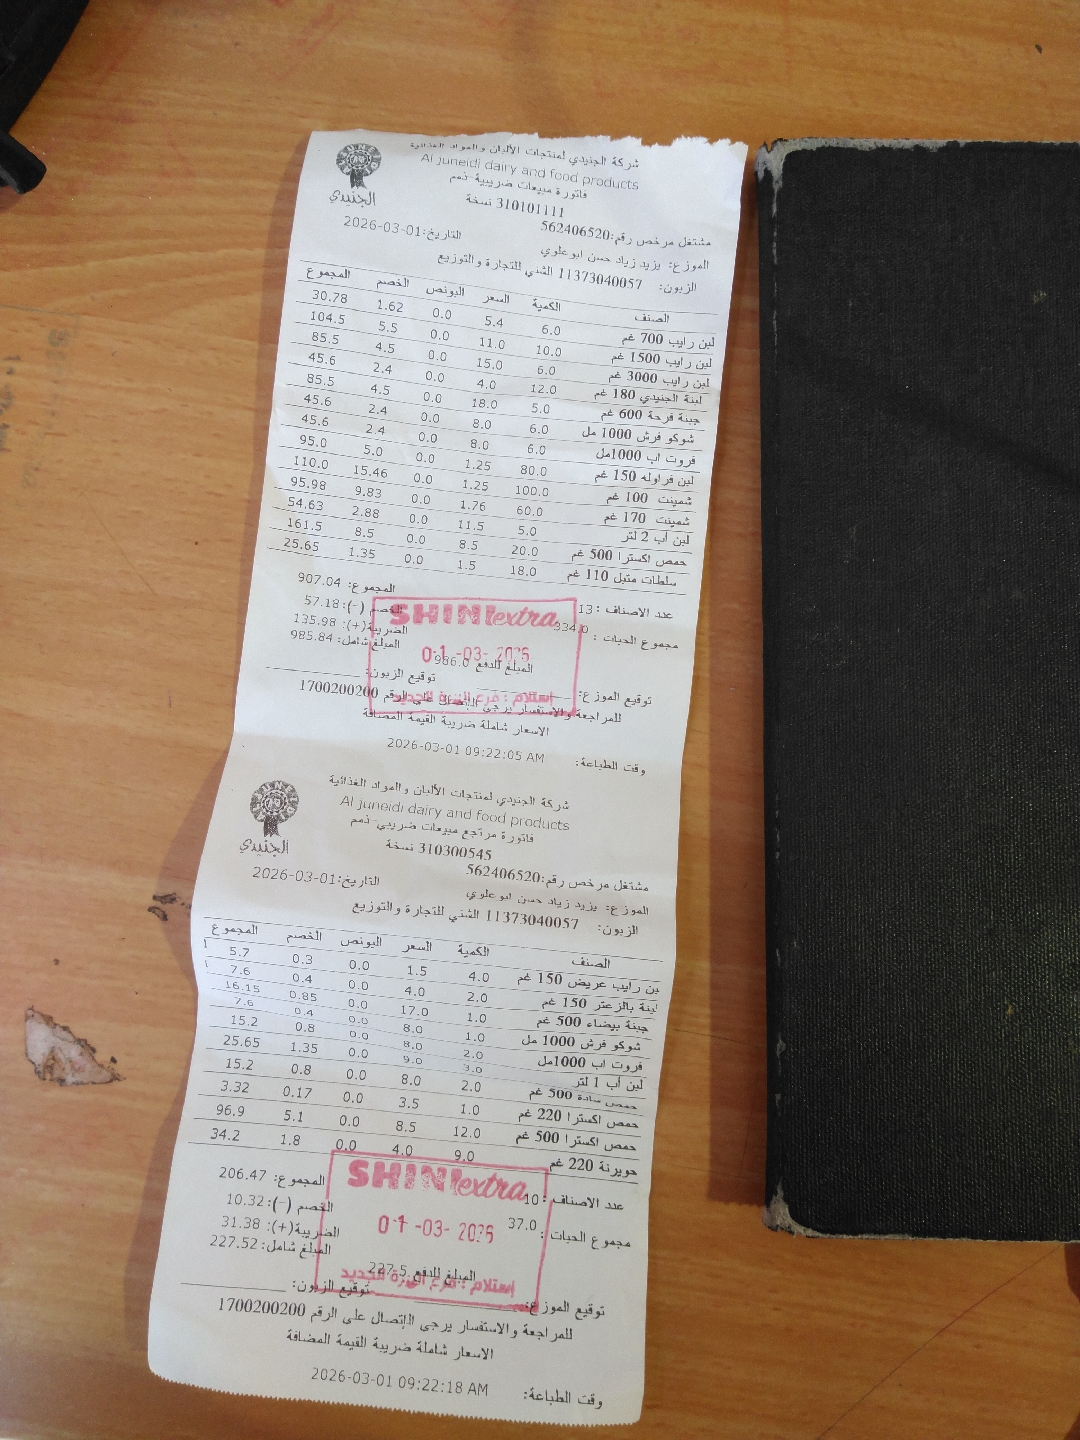 شركة الجنيدي لمنتجات الألبان والمواد الغذائية
Al juneidi dairy and food products
فاتورة مبيعات ضريبية-ذمم
310101111 نسخة
الجنيدي
مشتغل مرخص رقم:562406520
التاريخ:2026-03-01
الموزع: يزيد زياد حسن ابوعلوي
الزبون: 11373040057 الشني للتجارة والتوزيع
الصنف الكمية السعر البونص الخصم المجموع
لبن رايب 700 غم 6.0 5.4 0.0 1.62 30.78
لبن رايب 1500 غم 10.0 11.0 0.0 5.5 104.5
لبن رايب 3000 غم 6.0 15.0 0.0 4.5 85.5
لبنة الجنيدي 180 غم 12.0 4.0 0.0 2.4 45.6
جبنة فرحة 600 غم 5.0 18.0 0.0 4.5 85.5
شوكو فرش 1000 مل 6.0 8.0 0.0 2.4 45.6
فروت اب 1000مل 6.0 8.0 0.0 2.4 45.6
لبن فراوله 150 غم 80.0 1.25 0.0 5.0 95.0
شمينت 100 غم 100.0 1.25 0.0 15.46 110.0
شمينت 170 غم 60.0 1.76 0.0 9.83 95.98
لبن أب 2 لتر 5.0 11.5 0.0 2.88 54.63
حمص اكسترا 500 غم 20.0 8.5 0.0 8.5 161.5
سلطات متبل 110 غم 18.0 1.5 0.0 1.35 25.65
عدد الاصناف : 13 المجموع: 907.04
مجموع الحبات : 334.0 الخصم (-): 57.18
الضريبة(+): 135.98
المبلغ شامل: 985.84
SHINI extra
01-03-2026
المبلغ للدفع 986.0
توقيع الموزع: توقيع الزبون:
استلام : فرع
للمراجعة والاستفسار يرجى الإتصال على الرقم 1700200200
الاسعار شاملة ضريبة القيمة المضافة
وقت الطباعة: 2026-03-01 09:22:05 AM
شركة الجنيدي لمنتجات الألبان والمواد الغذائية
Al juneidi dairy and food products
فاتورة مرتجع مبيعات ضريبي-ذمم
310300545 نسخة
الجنيدي
مشتغل مرخص رقم:562406520
التاريخ:2026-03-01
الموزع: يزيد زياد حسن ابوعلوي
الزبون: 11373040057 الشني للتجارة والتوزيع
الصنف الكمية السعر البونص الخصم المجموع
بن رايب عريض 150 غم 4.0 1.5 0.0 0.3 5.7
لبنة بالزعتر 150 غم 2.0 4.0 0.0 0.4 7.6
جبنة بيضاء 500 غم 1.0 17.0 0.0 0.85 16.15
شوكو فرش 1000 مل 1.0 8.0 0.0 0.4 7.6
فروت اب 1000مل 2.0 8.0 0.0 0.8 15.2
لبن أب 1 لتر 3.0 9.0 0.0 1.35 25.65
حمص سادة 500 غم 2.0 8.0 0.0 0.8 15.2
حمص اكسترا 220 غم 1.0 3.5 0.0 0.17 3.32
حمص اكسترا 500 غم 12.0 8.5 0.0 5.1 96.9
حويرنة 220 غم 9.0 4.0 0.0 1.8 34.2
عدد الاصناف : 10 المجموع: 206.47
مجموع الحبات : 37.0 الخصم (-): 10.32
الضريبة(+): 31.38
المبلغ شامل: 227.52
SHINI extra
01-03-2026
المبلغ للدفع 227.5
استلام : فرع
توقيع الموزع: توقيع الزبون:
للمراجعة والاستفسار يرجى الإتصال على الرقم 1700200200
الاسعار شاملة ضريبة القيمة المضافة
وقت الطباعة: 2026-03-01 09:22:18 AM